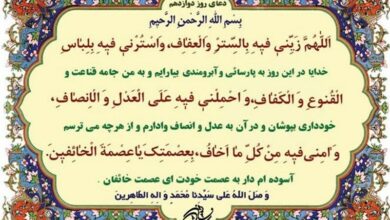 دعای روز دوازدهم
بِسْمِ اللهِ الرَّحْمنِ الرَّحیمِ
اَللّهُمَّ زَیِّنّی فیهِ بِالسِّترِ وَالْعِفافِ، وَاسْتُرْنی فیهِ بِلِباسِ
خدایا در این روز به پارسائی و آبرومندی بیارایم و به من جامه قناعت و
الْقُنوُعِ وَ الْكَفافِ، وَاحْمِلْنی فیهِ عَلَی الْعَدْلِ وَ الْاِنْصافِ،
خودداری بپوشان و در آن به عدل و انصاف وادارم و از هرچه می ترسم
وَ امِنی فیهِ مِنْ كُلِّ ما اَخافُ، بِعِصْمَتِكَ یا عِصْمَةَ الْخائِفینَ.
آسوده ام دار به عصمت خودت ای عصمت خائفان .
وَ صَلَ اللهُ عَلی سَیِّدِنا مُحَمَّد وَ الِهِ الطّاهِرینَ